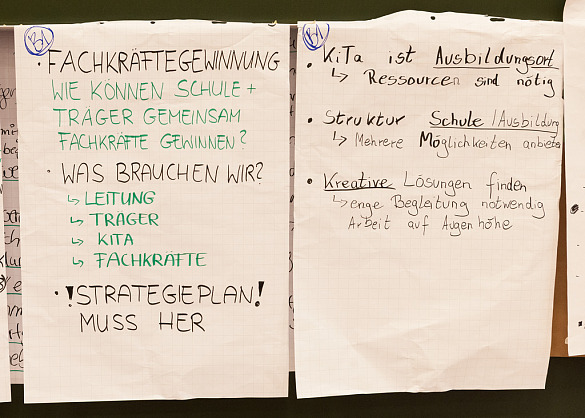 B1
• FACHKRÄFTEGEWINNUNG
WIE KÖNNEN SCHULE +
TRÄGER GEMEINSAM
FACHKRÄFTE GEWINNEN?
• WAS BRAUCHEN WIR?
↳ LEITUNG
↳ TRÄGER
↳ KITA
↳ FACHKRÄFTE
• !STRATEGIEPLAN!
MUSS HER
B1
• KiTa ist Ausbildungsort
↳ Ressourcen sind nötig
• Struktur Schule / Ausbildung
↳ Mehrere Möglichkeiten anbieten
• Kreative Lösungen finden
↳ enge Begleitung notwendig
Arbeit auf Augenhöhe